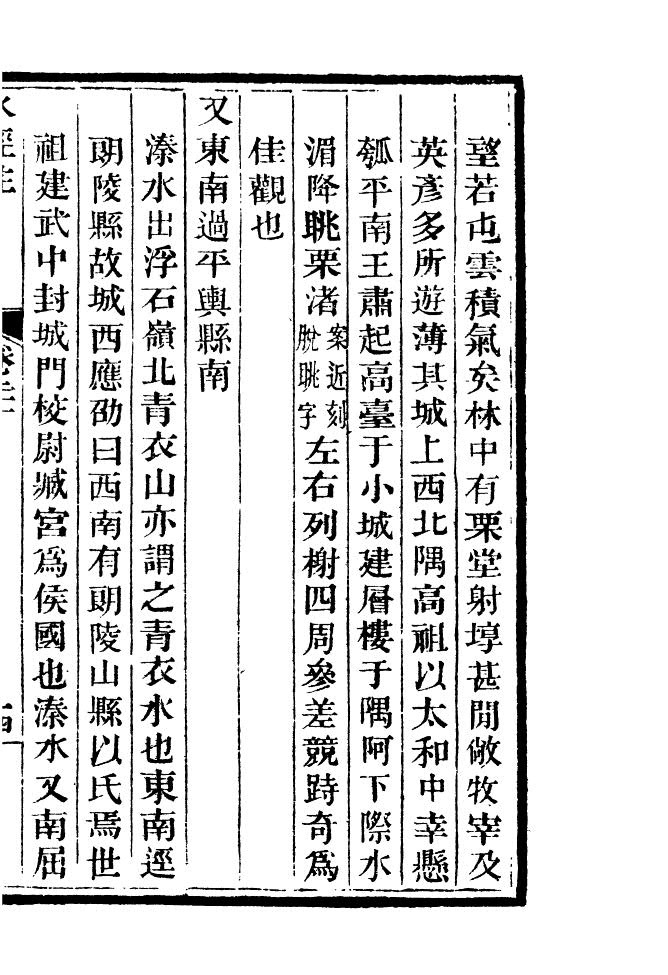 望若屯雲積氣矣林中有栗堂射埻甚閒敞牧宰及
英彥多所遊薄其城上西北隅高祖以太和中幸懸
瓠平南王肅起高臺于小城建層樓于隅阿下際水
湄降眺栗渚案近刻脫眺字左右列榭四周參差競跱奇為
佳觀也
又東南過平輿縣南
溱水出浮石嶺北青衣山亦謂之青衣水也東南逕
朗陵縣故城西應劭曰西南有朗陵山縣以氏焉世
祖建武中封城門校尉臧宮為侯國也溱水又南屈
水經注 卷二十一